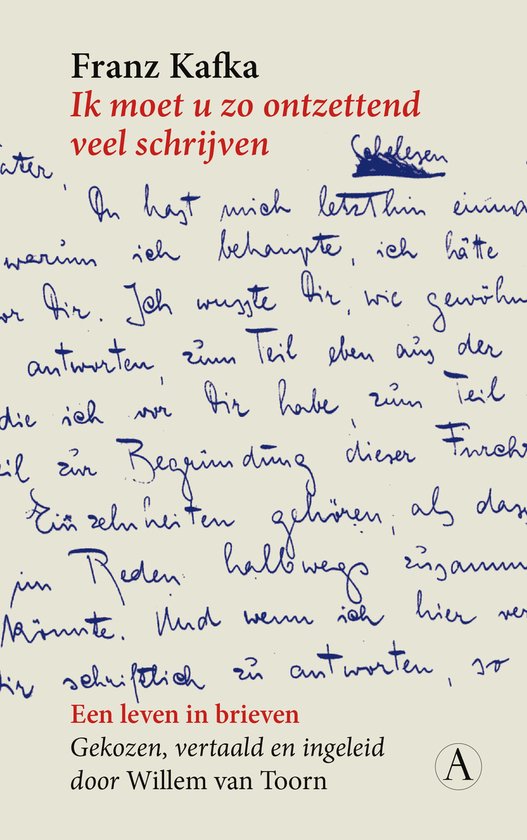 Franz Kafka
Ik moet u zo ontzettend
veel schrijven
Schelesen
ater,
Du hast mich letzthin einma
warum ich behaupte, ich hätte
or Dir. Ich wusste Dir, wie gewöhn
antworten, zum Teil eben aus der
die ich vor Dir habe, zum Teil
eil zur Begründung dieser Furcht
Einzelnheiten gehören, als dass
im Reden halbwegs zusamm
könnte. Und wenn ich hier ver
Dir schriftlich zu antworten, so
Een leven in brieven
Gekozen, vertaald en ingeleid
door Willem van Toorn
A